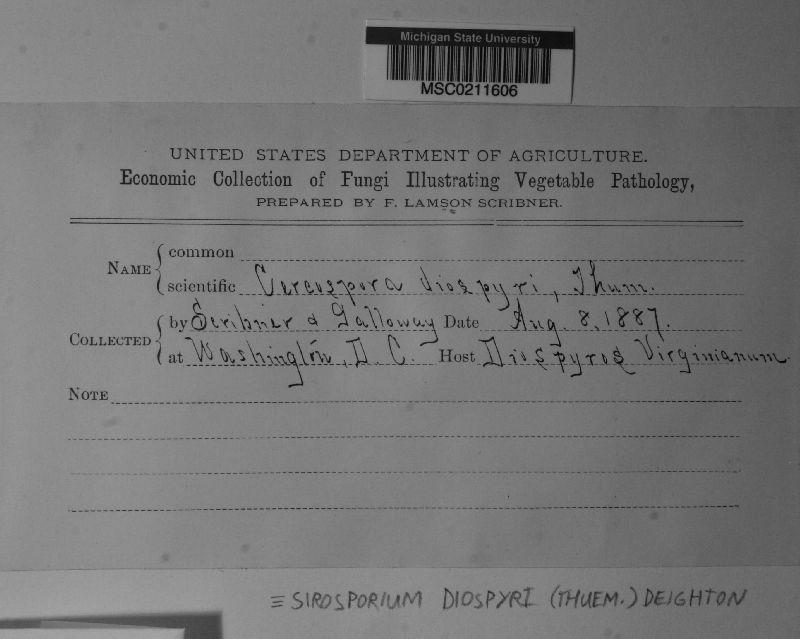 Michigan State University
MSC0211606
UNITED STATES DEPARTMENT OF AGRICULTURE.
Economic Collection of Fungi Illustrating Vegetable Pathology,
PREPARED BY F. LAMSON SCRIBNER.
NAME { common
scientific Cercospora diospyri, Thum.
COLLECTED { by Scribner & Galloway Date Aug. 8, 1887.
at Washington, D. C. Host Diospyros Virginianum.
NOTE
≡ SIROSPORIUM DIOSPYRI (THUEM.) DEIGHTON